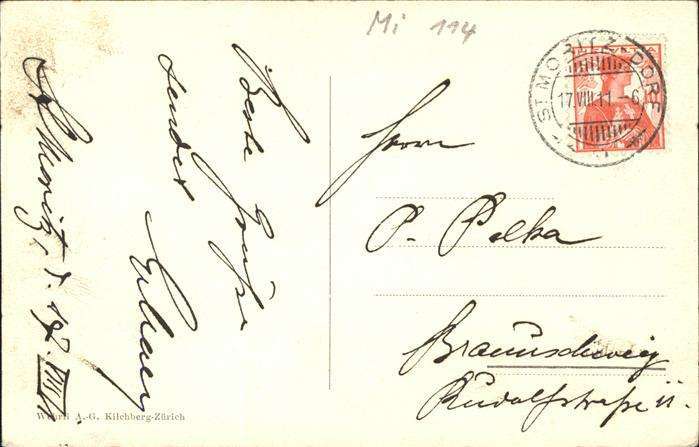 Mi 114
ST. MORITZ-DORF
17.VIII.11.-6
Herrn
P. Pelka
Braunschweig
Rudolfstraße 11.
Beste Grüße
sendet
St Moritz, d. 17. VIII
Wehrli A.-G. Kilchberg-Zürich